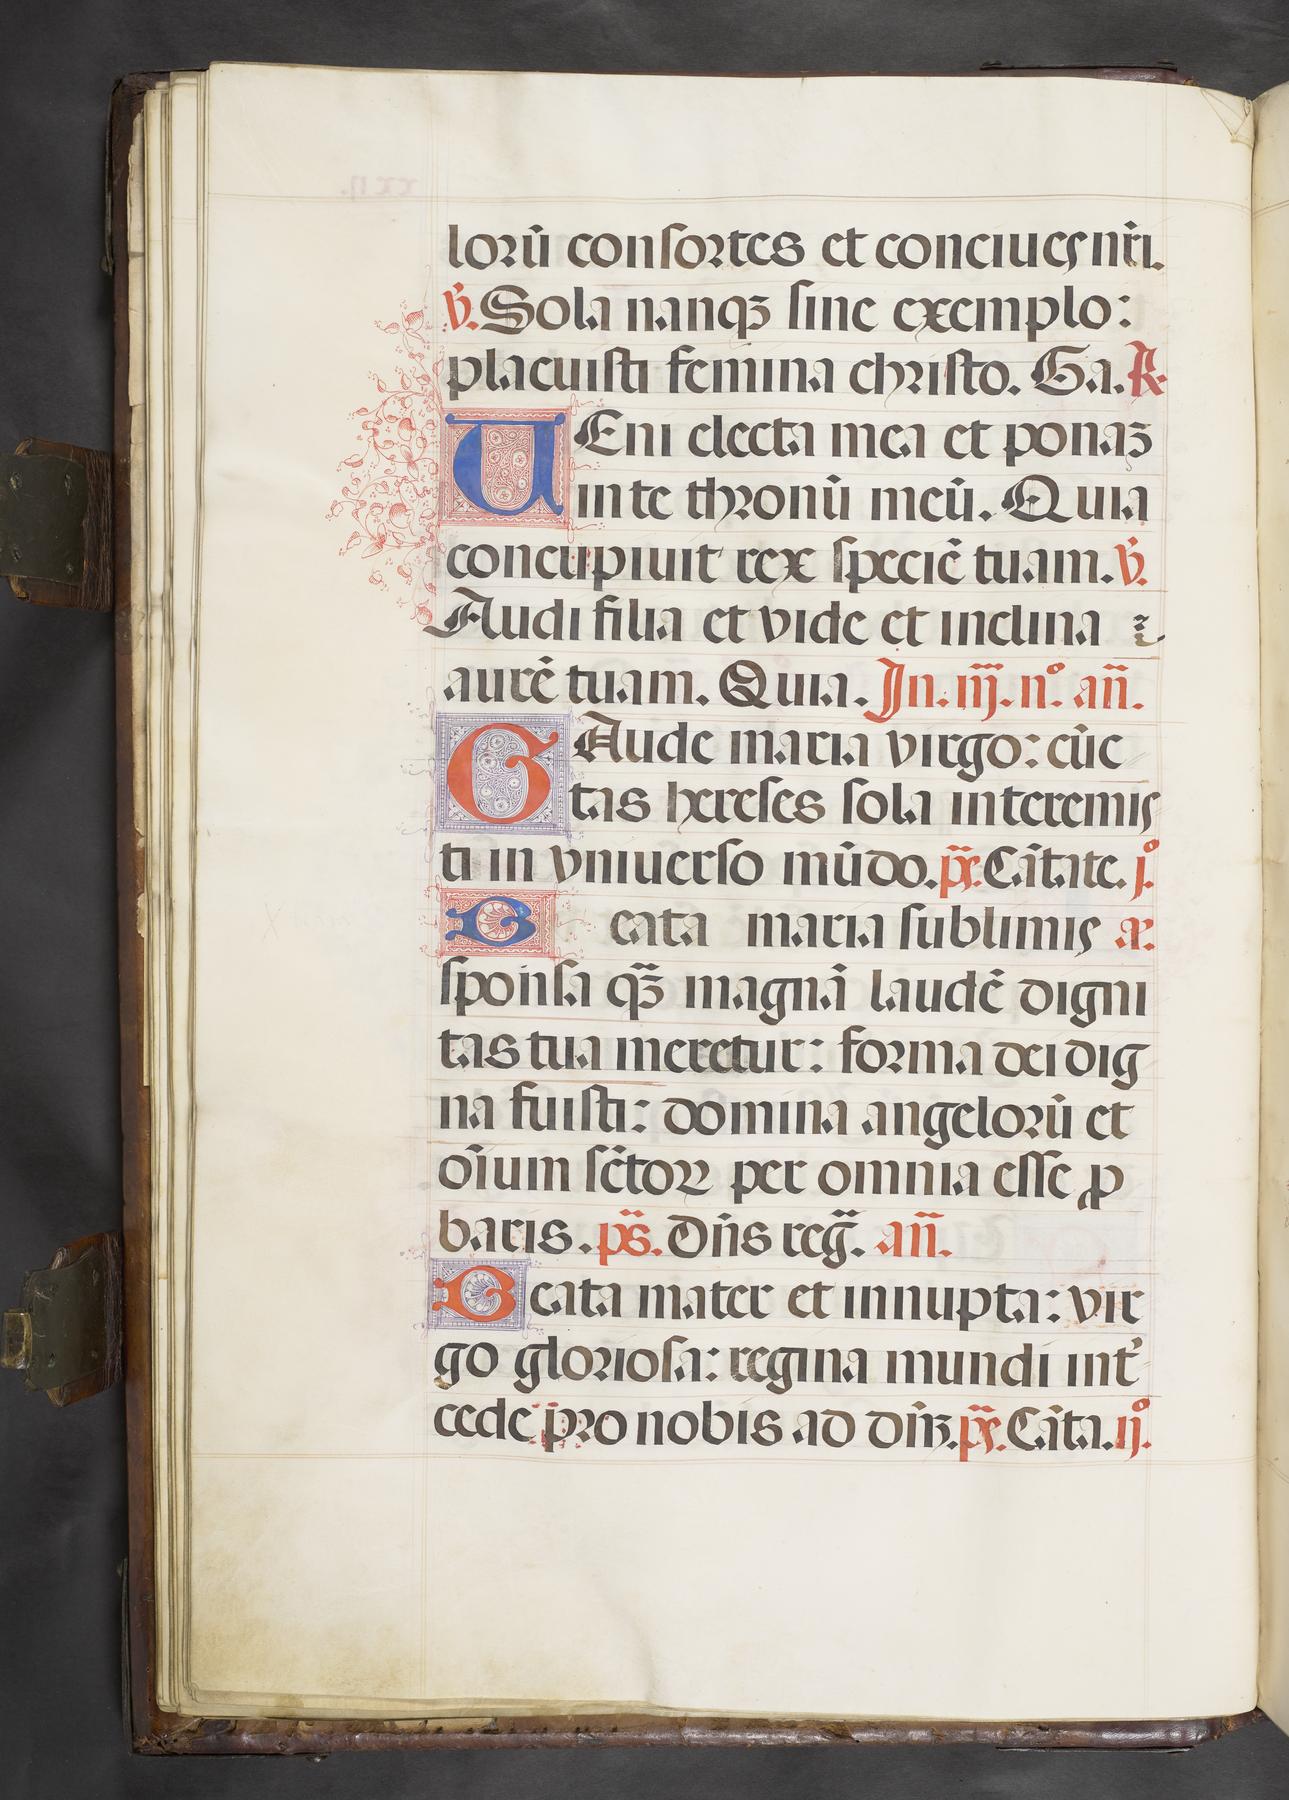 lorū consortes et conciues nr̄i.
℣. Sola nanqꝫ sine exemplo:
placuisti femina christo. Ga. ℟
UEni electa mea et ponaꝫ
in te thronū meū. Quia
concupiuit rex speciē tuam. ℣.
Audi filia et vide et inclina
aurē tuam. Quia. In. iij. nº. an̄.
GAude maria virgo: cūc
tas hereses sola interemis
ti in vniuerso mūdo. p̄s. Cātate. jº.
Beata maria sublimis a.
sponsa qꝫ̄ magnā laudē digni
tas tua meretur: forma dei dig
na fuisti: domina angelorū et
oīum sc̄toꝝ per omnia esse ꝓ
baris. ps̄. Dn̄s reḡ. an̄.
Beata mater et innupta: vir
go gloriosa: regina mundi int̉
cede pro nobis ad dn̄ꝫ. p̄s. Cāta. ijº.